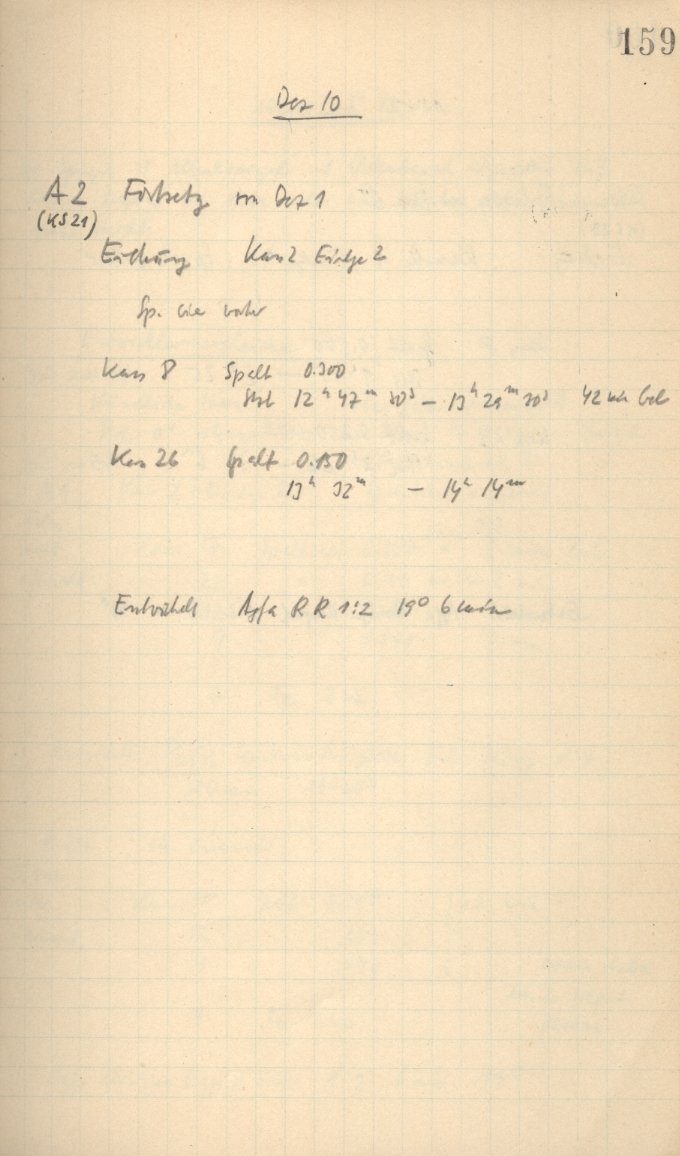 159
Dez 10
A2 Fortsetzg von Dez 1
(KS21)
Eichung Kass 2
Sp. wie vorher
Kass 8 Spalt 0.300
12ʰ 47ᵐ 30ˢ – 13ʰ 29ᵐ 30ˢ 42
Kass 26 Spalt 0.150
13ʰ 32ᵐ – 14ʰ 14ᵐ
Entwickelt Agfa RR 1:2 19° 6 min